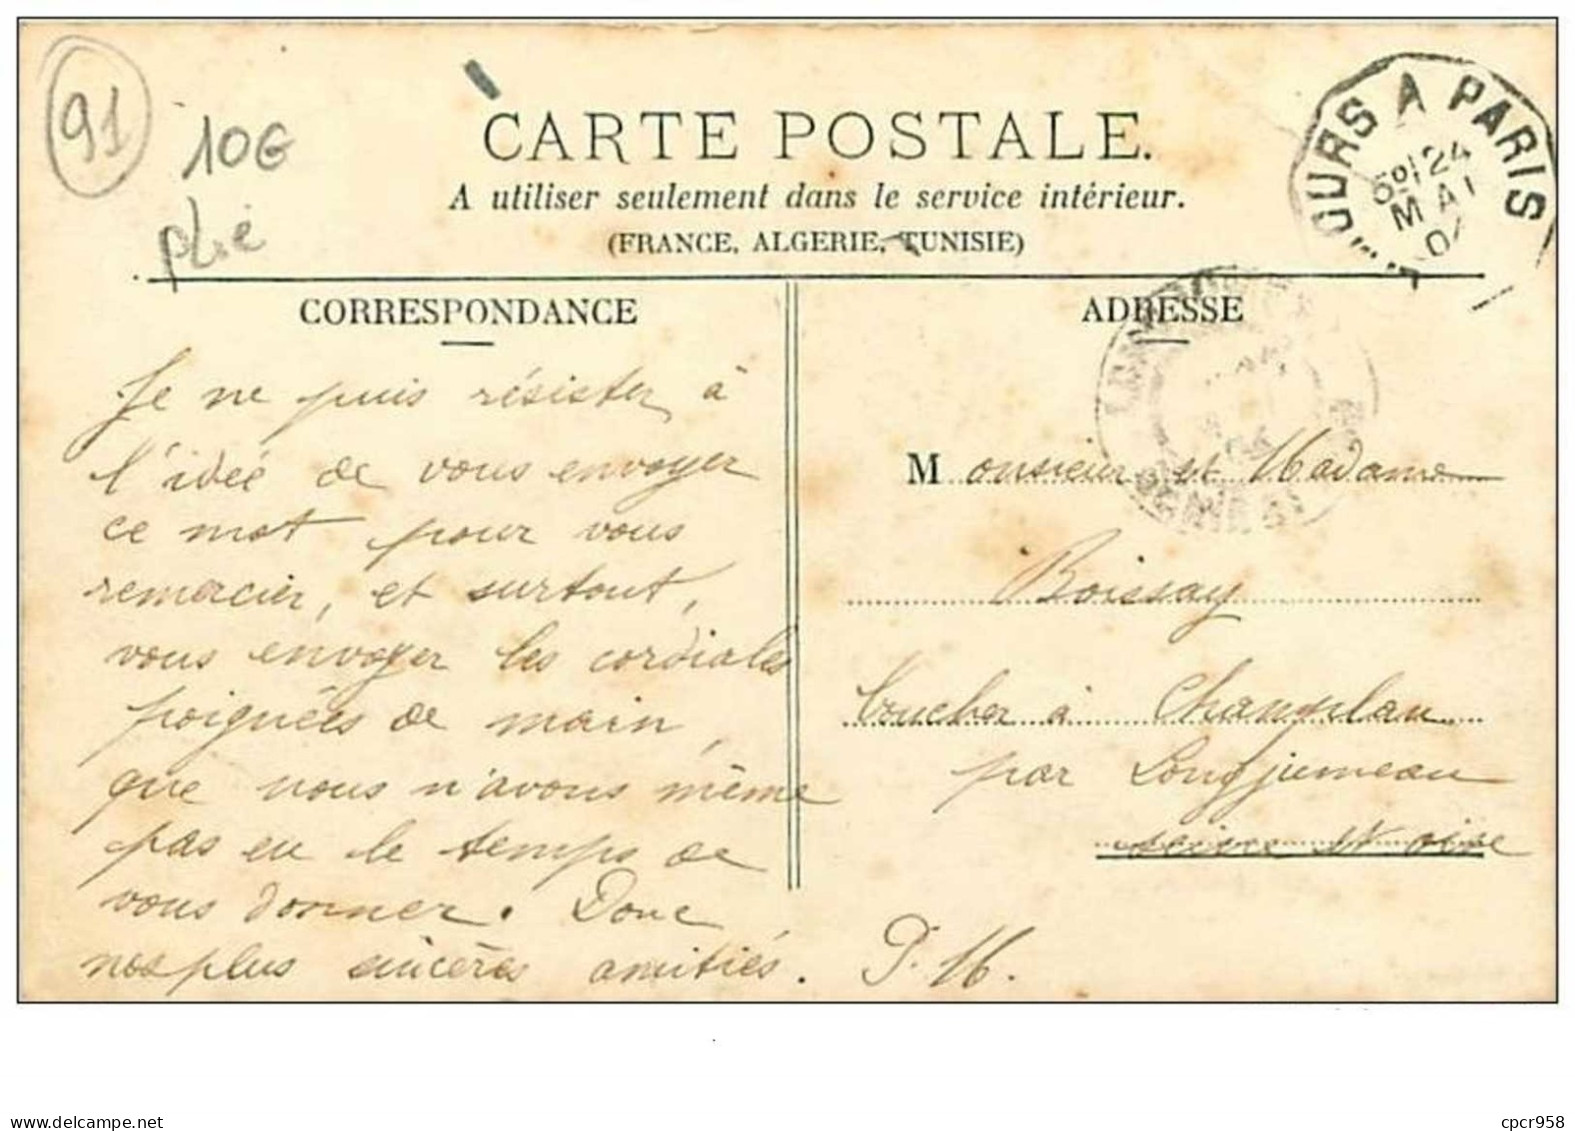 91
10€
plié
CARTE POSTALE.
A utiliser seulement dans le service intérieur.
(FRANCE, ALGERIE, TUNISIE)
TOURS A PARIS
24
MAI
CORRESPONDANCE
Je ne puis résister à
l'idée de vous envoyer
ce mot pour vous
remercier, et surtout,
vous envoyer les cordiales
poignées de main,
que nous n'avons même
pas eu le temps de
vous donner. Donc
nos plus sincères amitiés. P. M.
ADRESSE
Monsieur et Madame
Boissay
à Champlan
par Longjumeau
Seine et Oise
cpcr958